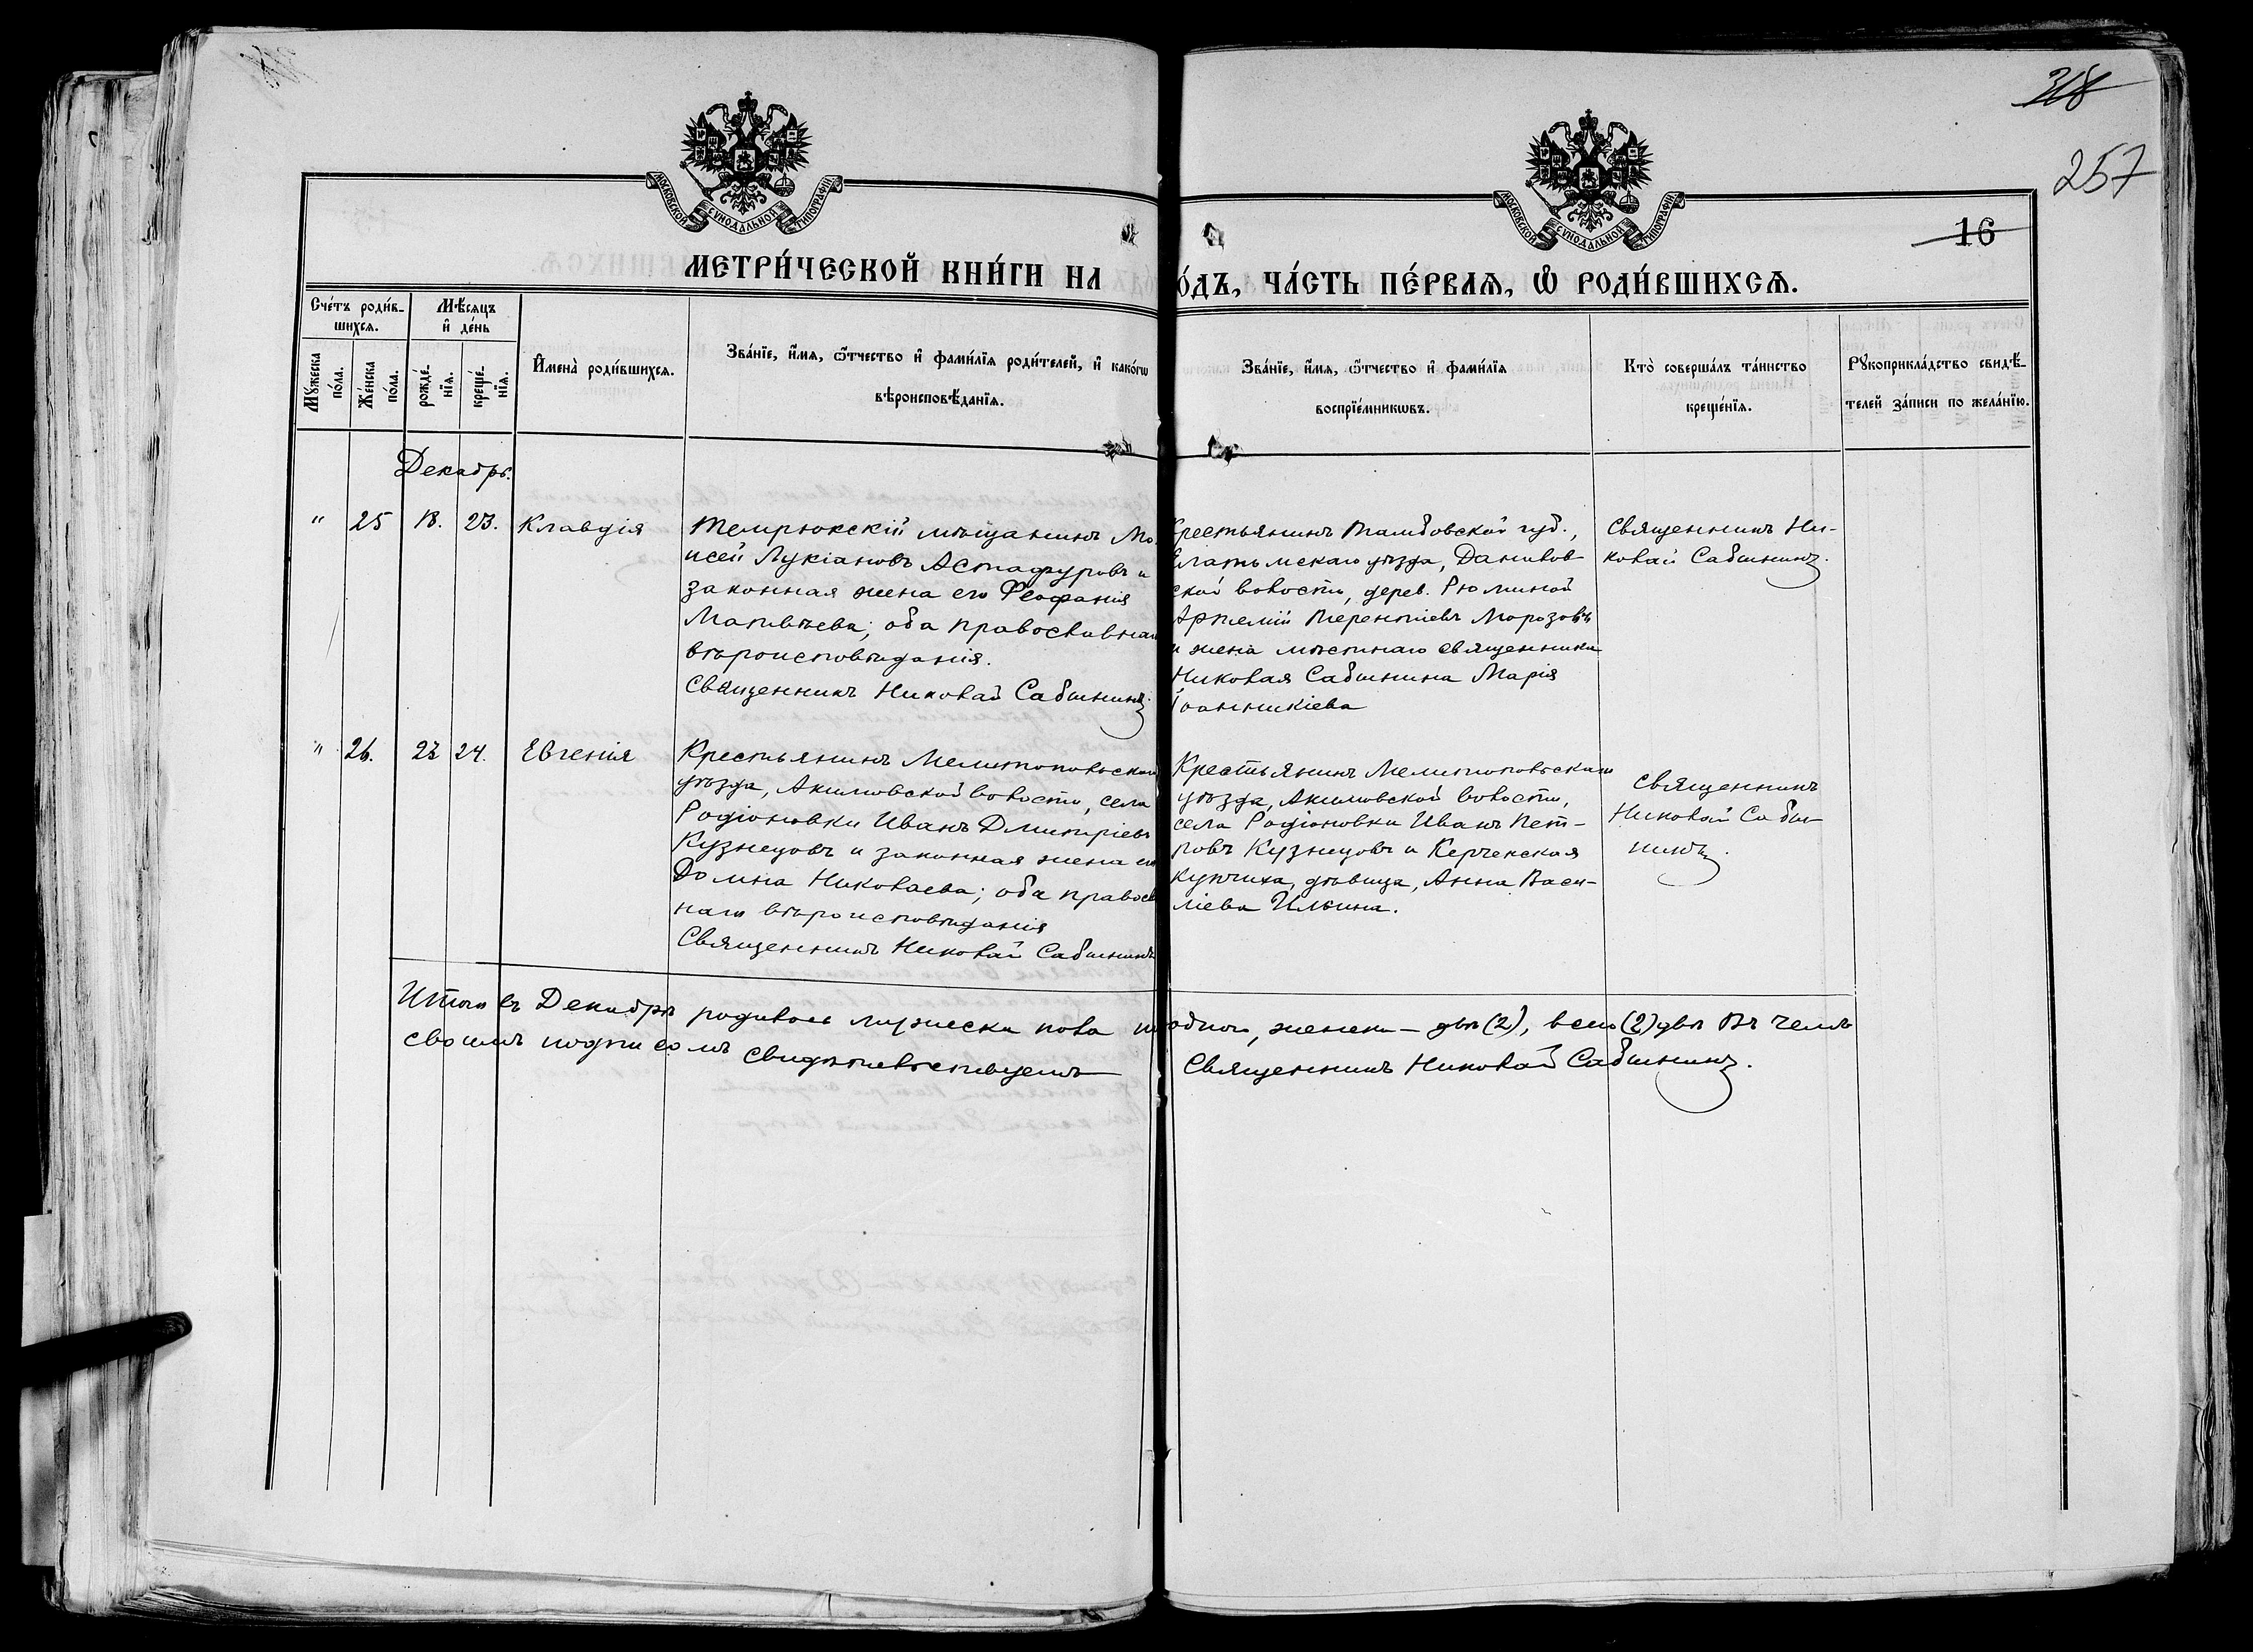 318
257
МОСКОВСКОЙ СѴНОДАЛЬНОЙ ТИПОГРАФІИ
МОСКОВСКОЙ СѴНОДАЛЬНОЙ ТИПОГРАФІИ
16
МЕТРИ́ЧЕСКОЙ КНИ́ГИ НА
О́ДЪ, ЧА́СТЬ ПЕ́РВАѦ, Ѡ҆ РОДИ́ВШИХСѦ.
Сче́тъ роди́в-
шихсѧ.
Мѣ́сѧцъ
и҆ де́нь
Мꙋ́жеска
по́ла.
Же́нска
по́ла.
рожде́-
нїѧ.
креще́-
нїѧ.
И҆мена̀ роди́вшихсѧ.
Зва́нїе, и҆́мѧ, ѻ҆́тчество и҆ фами́лїѧ роди́телей, и҆ како́гѡ
вѣроисповѣ́данїѧ.
Зва́нїе, и҆́мѧ, ѻ҆́тчество и҆ фами́лїѧ
воспрїе́мникѡвъ.
Кто̀ соверша́лъ та́инство
креще́нїѧ.
Рꙋкоприкла́дство свидѣ́-
телей за́писи по жела́нїю.
Декабрь.
" 25 18. 23. Клавдія
Темрюкскій мѣщанинъ Мо-
исей Лукіановъ Астафуровъ и
законная жена его Феофанія
Матвѣева; оба православнаго
вѣроисповѣданія.
Священникъ Николай Сабининъ.
Крестьянинъ Тамбовской губ.,
Елатьмскаго уѣзда, Данилов-
ской волости, дерев. Рюминой
Артемій Терентіевъ Морозовъ
и жена мѣстнаго священника
Николая Сабинина Марія
Іоанникіева
Священникъ Ни-
колай Сабининъ.
" 26. 23 24. Евгенія
Крестьянинъ Мелитопольскаго
уѣзда, Акимовской волости, села
Родіоновки Иванъ Дмитріевъ
Кузнецовъ и законная жена его
Домна Николаева; оба правосл
наго вѣроисповѣданія
Священникъ Николай Сабининъ
Крестьянинъ Мелитопольскаго
уѣзда, Акимовской волости,
села Родіоновки Иванъ Пет-
ровъ Кузнецовъ и Керченская
купчиха, дѣвица, Анна Васи-
ліева Илькина.
Священникъ
Николай Саби-
нинъ.
Итого въ Декабрѣ родилось мужеска пола ни одного, женска - двѣ (2), всего (2) двѣ Въ чемъ
своимъ подписомъ свидѣтельствуемъ Священникъ Николай Сабининъ.